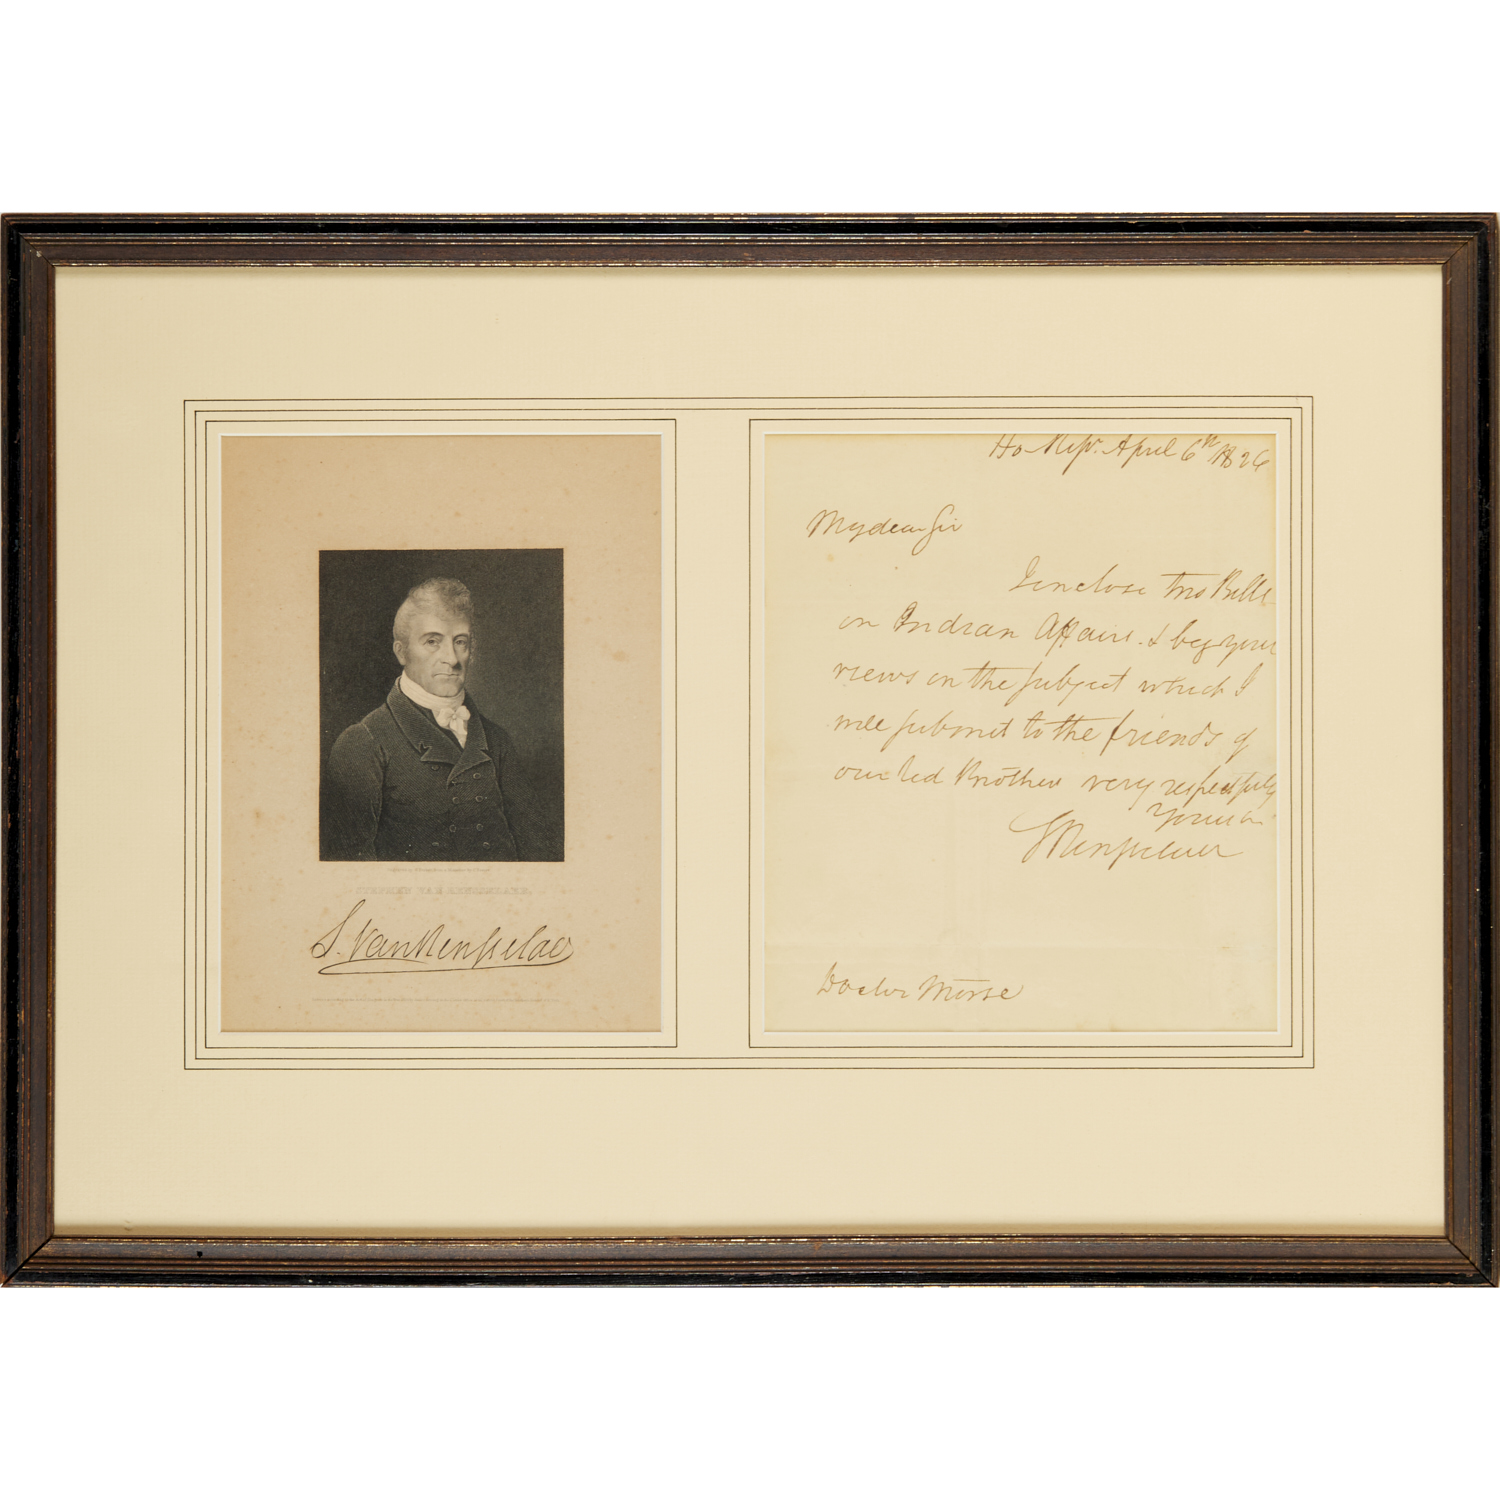 STEPHEN VAN RENSSELAER.
S. Van Rensselaer
Ho Repr. April 6th 1826
My dear Sir
I enclose two Bills
on Indian Affairs. & beg your
views on the subject which I
will submit to the friends of
our red Brothers very respectfully
Yours
S V Rensselaer
Doctor Morse